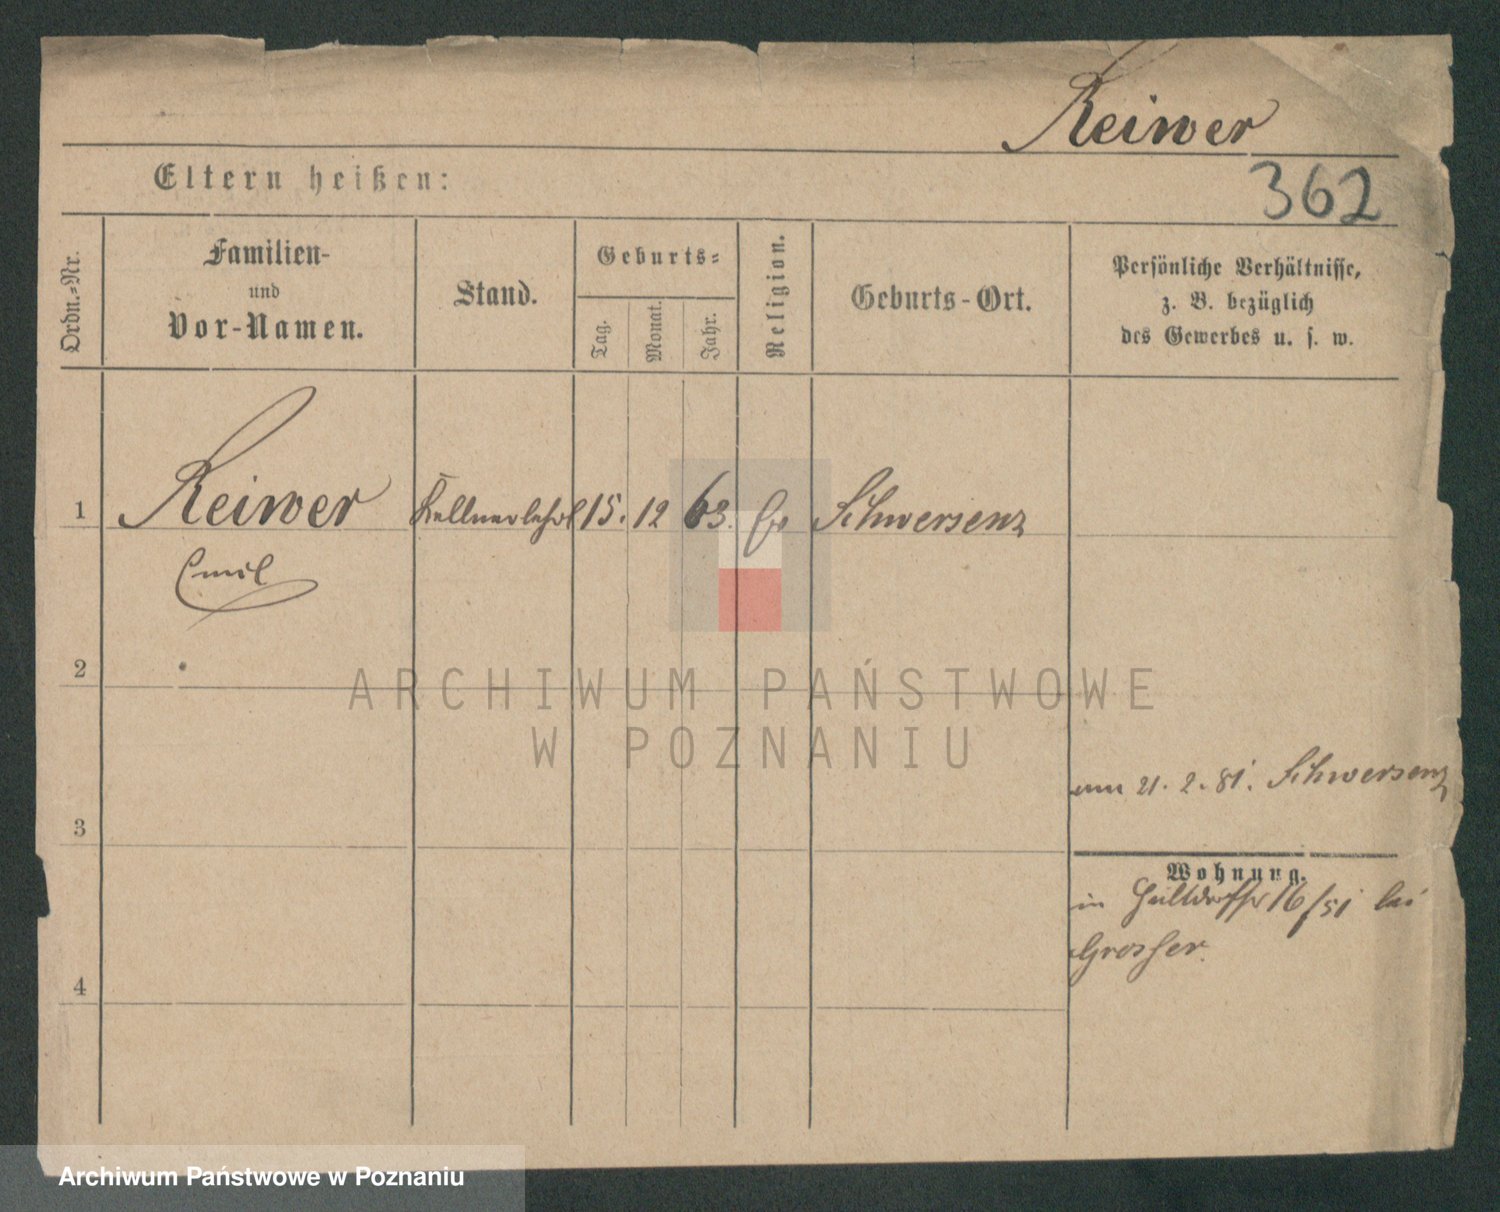 Reiwer
Eltern heißen:
362
Ordn.-Nr.
Familien-
und
Vor-Namen.
Stand.
Geburts-
Tag.
Monat.
Jahr.
Religion.
Geburts-Ort.
Persönliche Verhältnisse,
z. B. bezüglich
des Gewerbes u. s. w.
1 Reiwer Kellnerlehrl 15. 12 63. Schwersenz
Emil
2
ARCHIWUM PAŃSTWOWE
W POZNANIU
21. 2. 81. Schwersenz
3
Wohnung.
in 16/51 bei
Grosser.
4
Archiwum Państwowe w Poznaniu